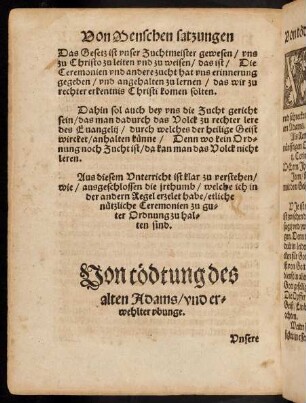 Von Menschen satzungen
Das Gesetz ist vnser Zuchtmeister gewesen / vns
zu Christo zu leiten vnd zu weisen / das ist / Die
Ceremonien vnd andere zucht hat vns erinnerung
gegeben / vnd angehalten zu lernen / das wir zu
rechter erkentnis Christi komen solten.
Dahin sol auch bey vns die Zucht gericht
sein / das man dadurch das Volck zu rechter lere
des Euangelij / durch welches der heilige Geist
wircket / anhalten künne / Denn wo kein Ord-
nung noch Zucht ist / da kan man das Volck nicht
leren.
Aus diesem Vnterricht ist klar zu verstehen /
wie / ausgeschlossen die irthumb / welche ich in
der andern Regel erzelet habe / etliche
nützliche Ceremonien zu gu-
ter Ordnung zu hal-
ten sind.
Von tödtung des
alten Adams / vnd er-
wehlter vbunge.
Vnsere